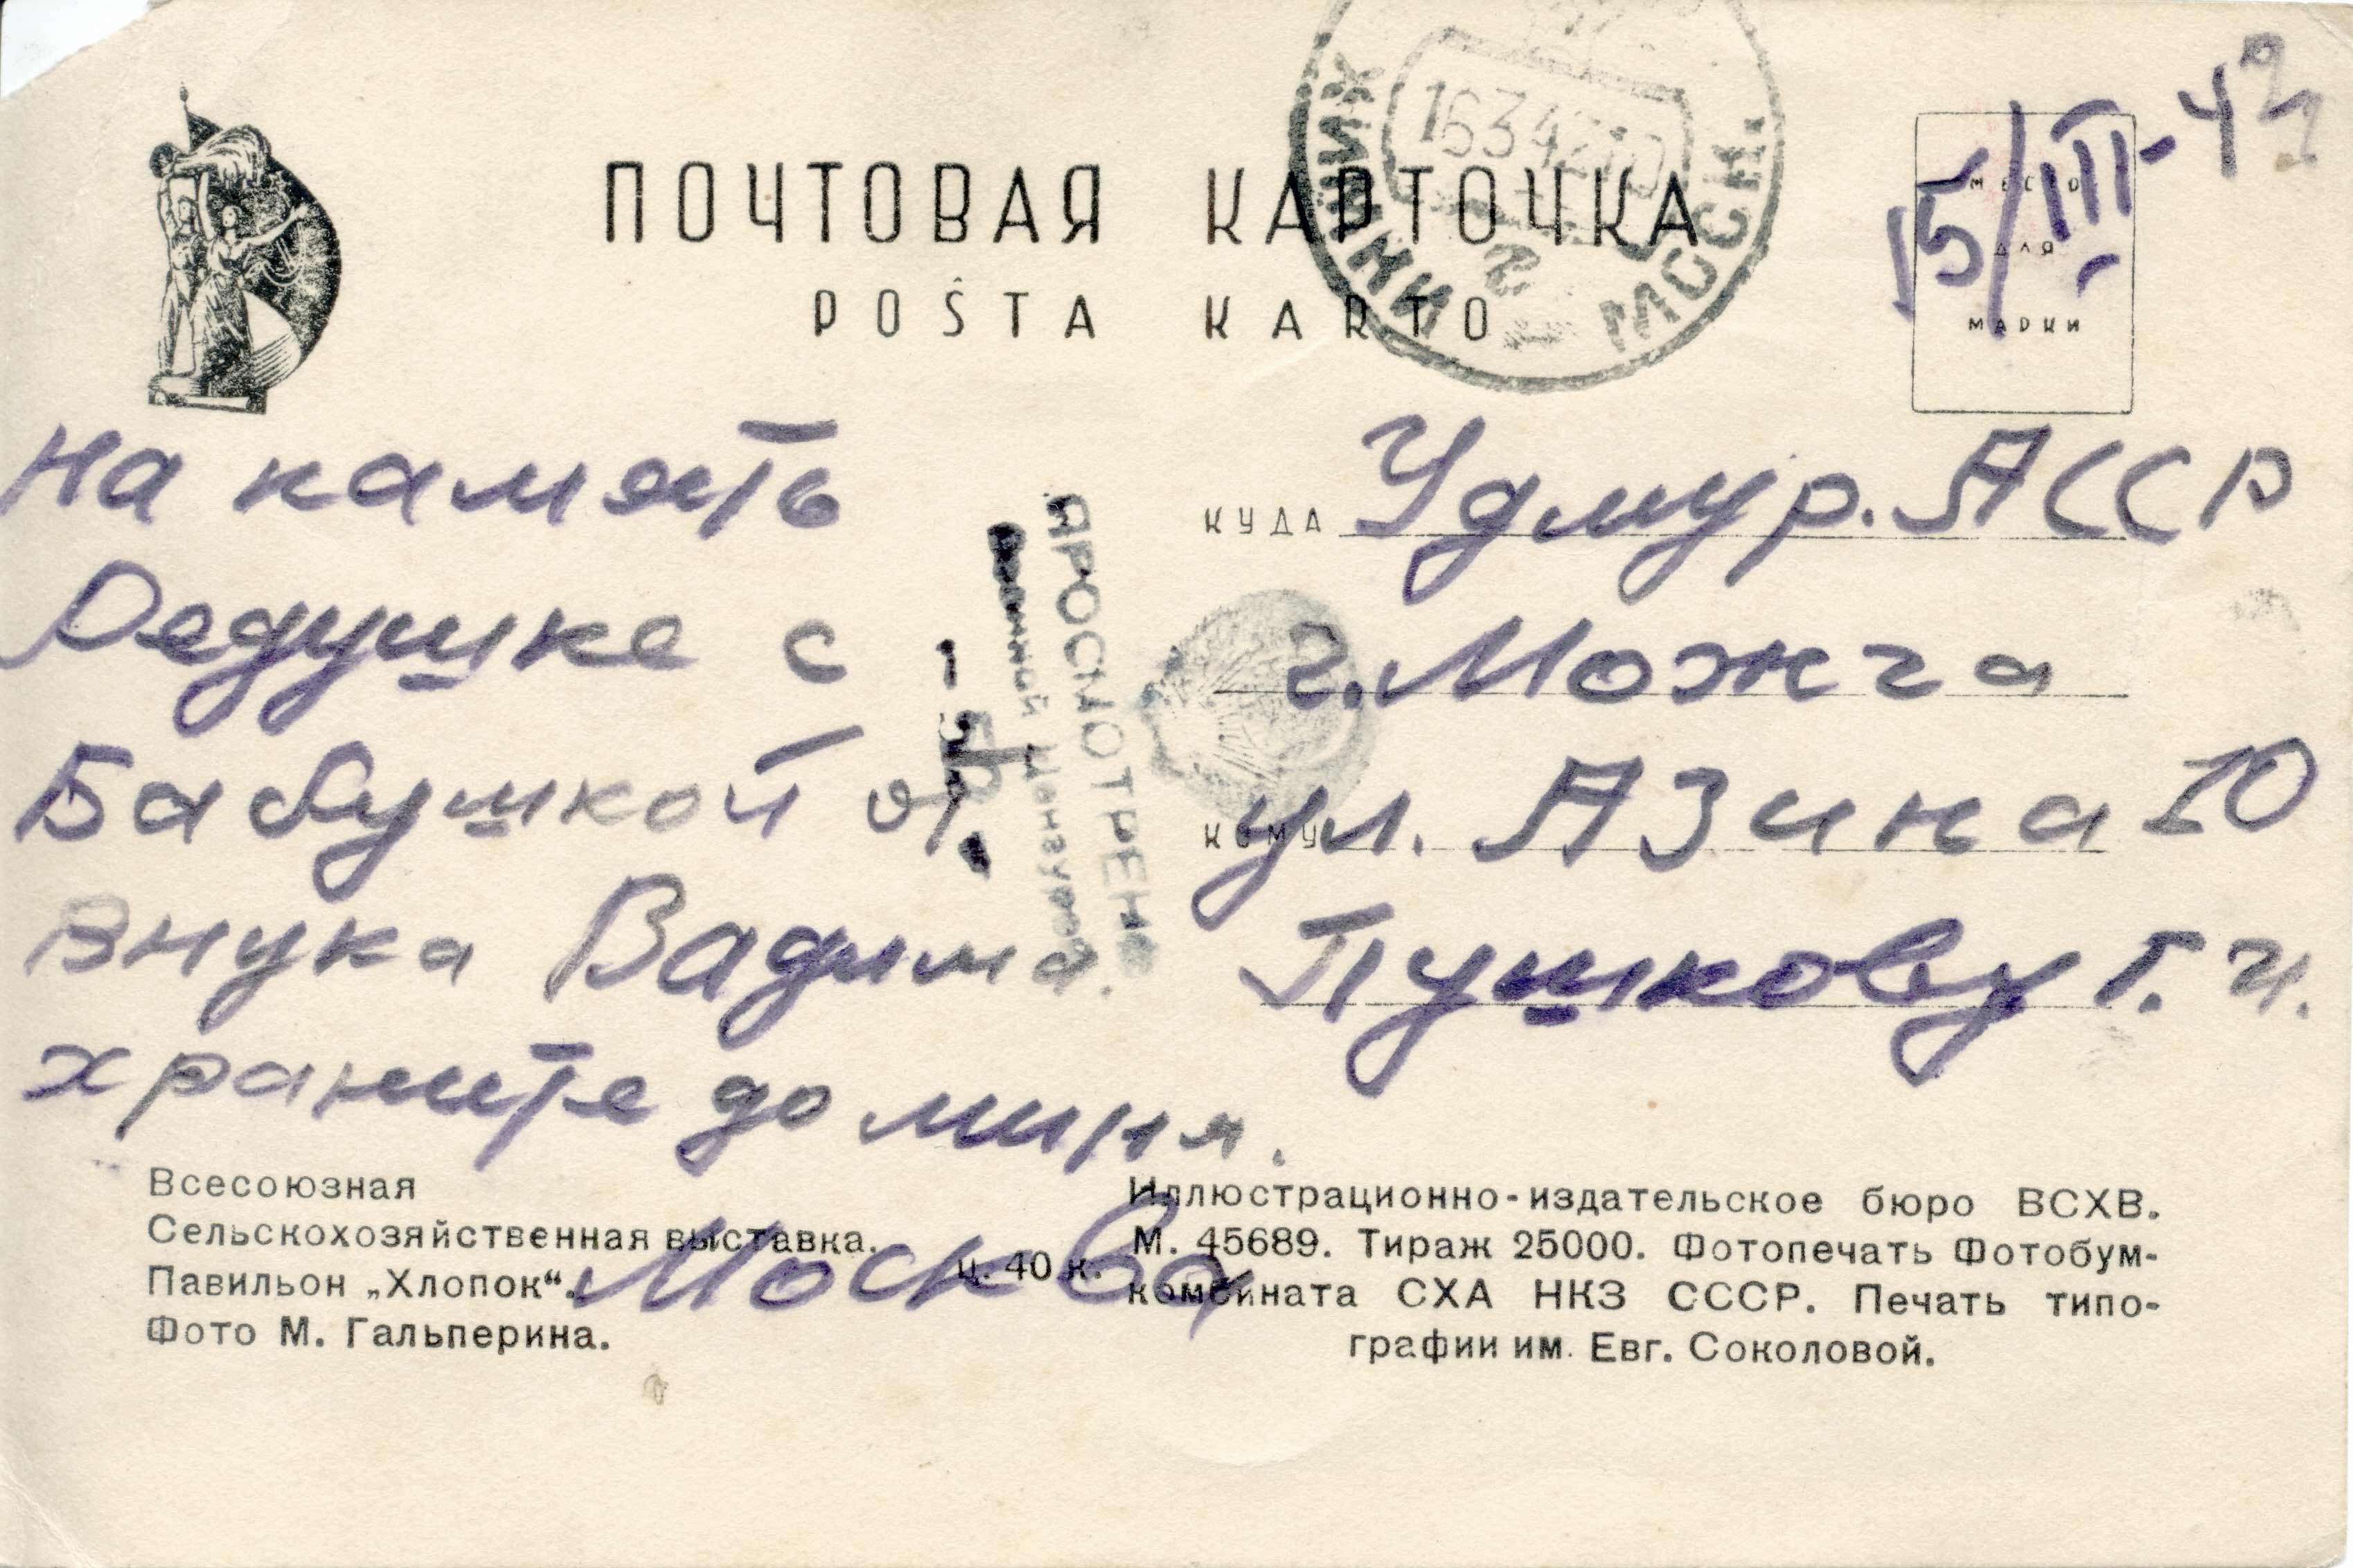 ПОЧТОВАЯ КАРТОЧКА
POŜTA KARTO
ХИМКИ
МОСК.
16 3 42 10
МЕСТО
ДЛЯ
МАРКИ
15/III-42
на память
Дедушке с
Бабушкой от
внука Вадима.
храните до миня.
Москва
ПРОСМОТРЕНО
Военной Цензурой
КУДА Удмур. АССР
г. Можга
КОМУ ул. Азина 10
Пушкову Г. И.
Всесоюзная
Сельскохозяйственная выставка.
Павильон „Хлопок“.
Фото М. Гальперина.
ц. 40 к.
Иллюстрационно-издательское бюро ВСХВ.
М. 45689. Тираж 25000. Фотопечать Фотобум-
комбината СХА НКЗ СССР. Печать типо-
графии им. Евг. Соколовой.